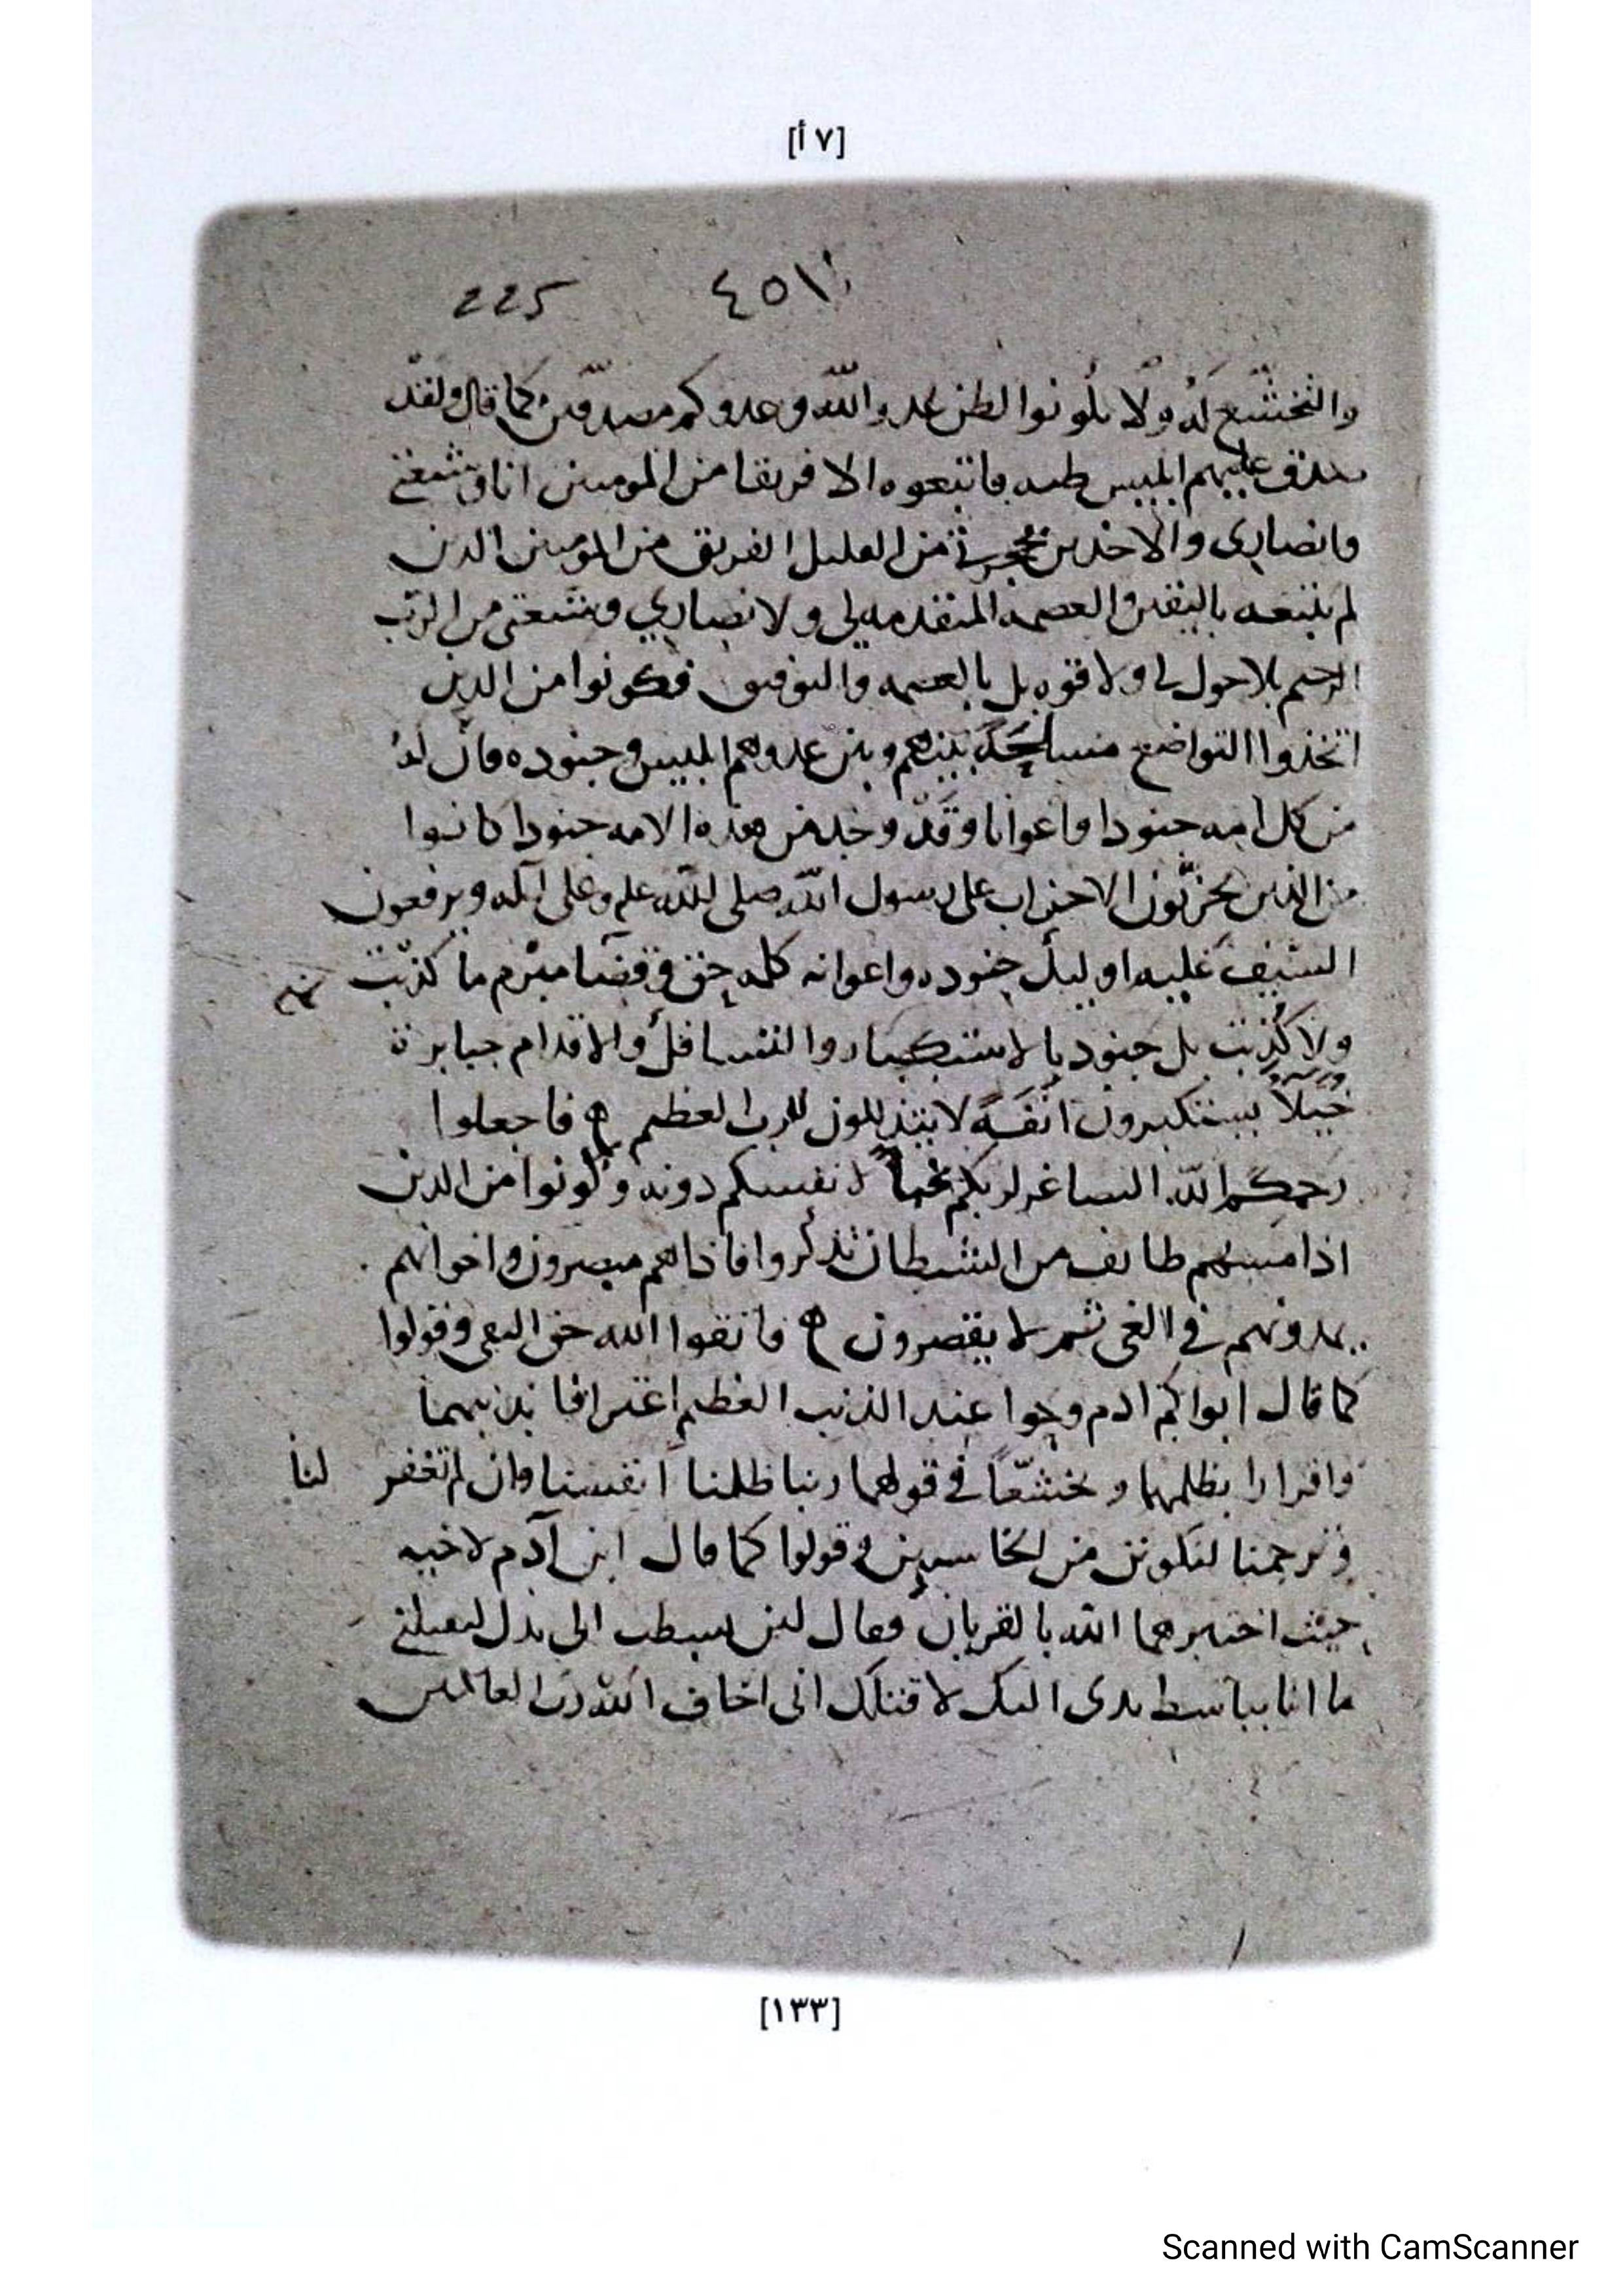 [٧ أ]
٤٥١
225
والتخشع له ولا تكونوا لظن عدو الله وعدوكم مصدقين كما قال ولقد
صدق عليهم ابليس ظنه فاتبعوه الا فريقا من المومنين انا وشيعتي
وانصاري والاخذين من القليل الفريق من المومنين الذين
لم يتبعه باليقين والعصمه المتقدمه لي ولانصاري وشيعتي من الرب
الرحيم بلا حول لي ولا قوه بل بالعصمه والتوفيق فكونوا من الذين
اتخذوا التواضع بينهم وبين عدوهم ابليس وجنوده فان له
من كل امه جنودا واعوانا وقد وجد من هذه الامه جنودا كانوا
من الذين يحزبون الاحزاب على رسول الله صلى الله عليه وعلى آله ويرفعون
السيف عليه اوليك جنوده واعوانه كلمه حق وقضا مبرم ما كذبت
ولا كذبت بل جنود بالاستكبار والاقدام جبابرة
يستكبرون انفة لا يتذللون للرب العظيم ه فاجعلوا
رحمكم الله التصاغر لربكم لانفسكم دونه وكونوا من الذين
اذا مسهم طايف من الشيطان تذكروا فاذا هم مبصرون واخوانهم
يمدونهم في الغي ثم لا يقصرون ه فاتقوا الله حق التقى وقولوا
كما قال ابواكم ادم وحوا عند الذنب العظيم اعترافا بذنبهما
واقرارا بظلمهما وتخشعا في قولهما ربنا ظلمنا انفسنا وان لم تغفر لنا
وترحمنا لنكونن من الخاسرين وقولوا كما قال ابن آدم لاخيه
حيث اختبرهما الله بالقربان فقال لين بسطت الي يدك لتقتلني
ما انا بباسط يدى اليك لاقتلك اني اخاف الله رب العالمين
[١٣٣]
Scanned with CamScanner